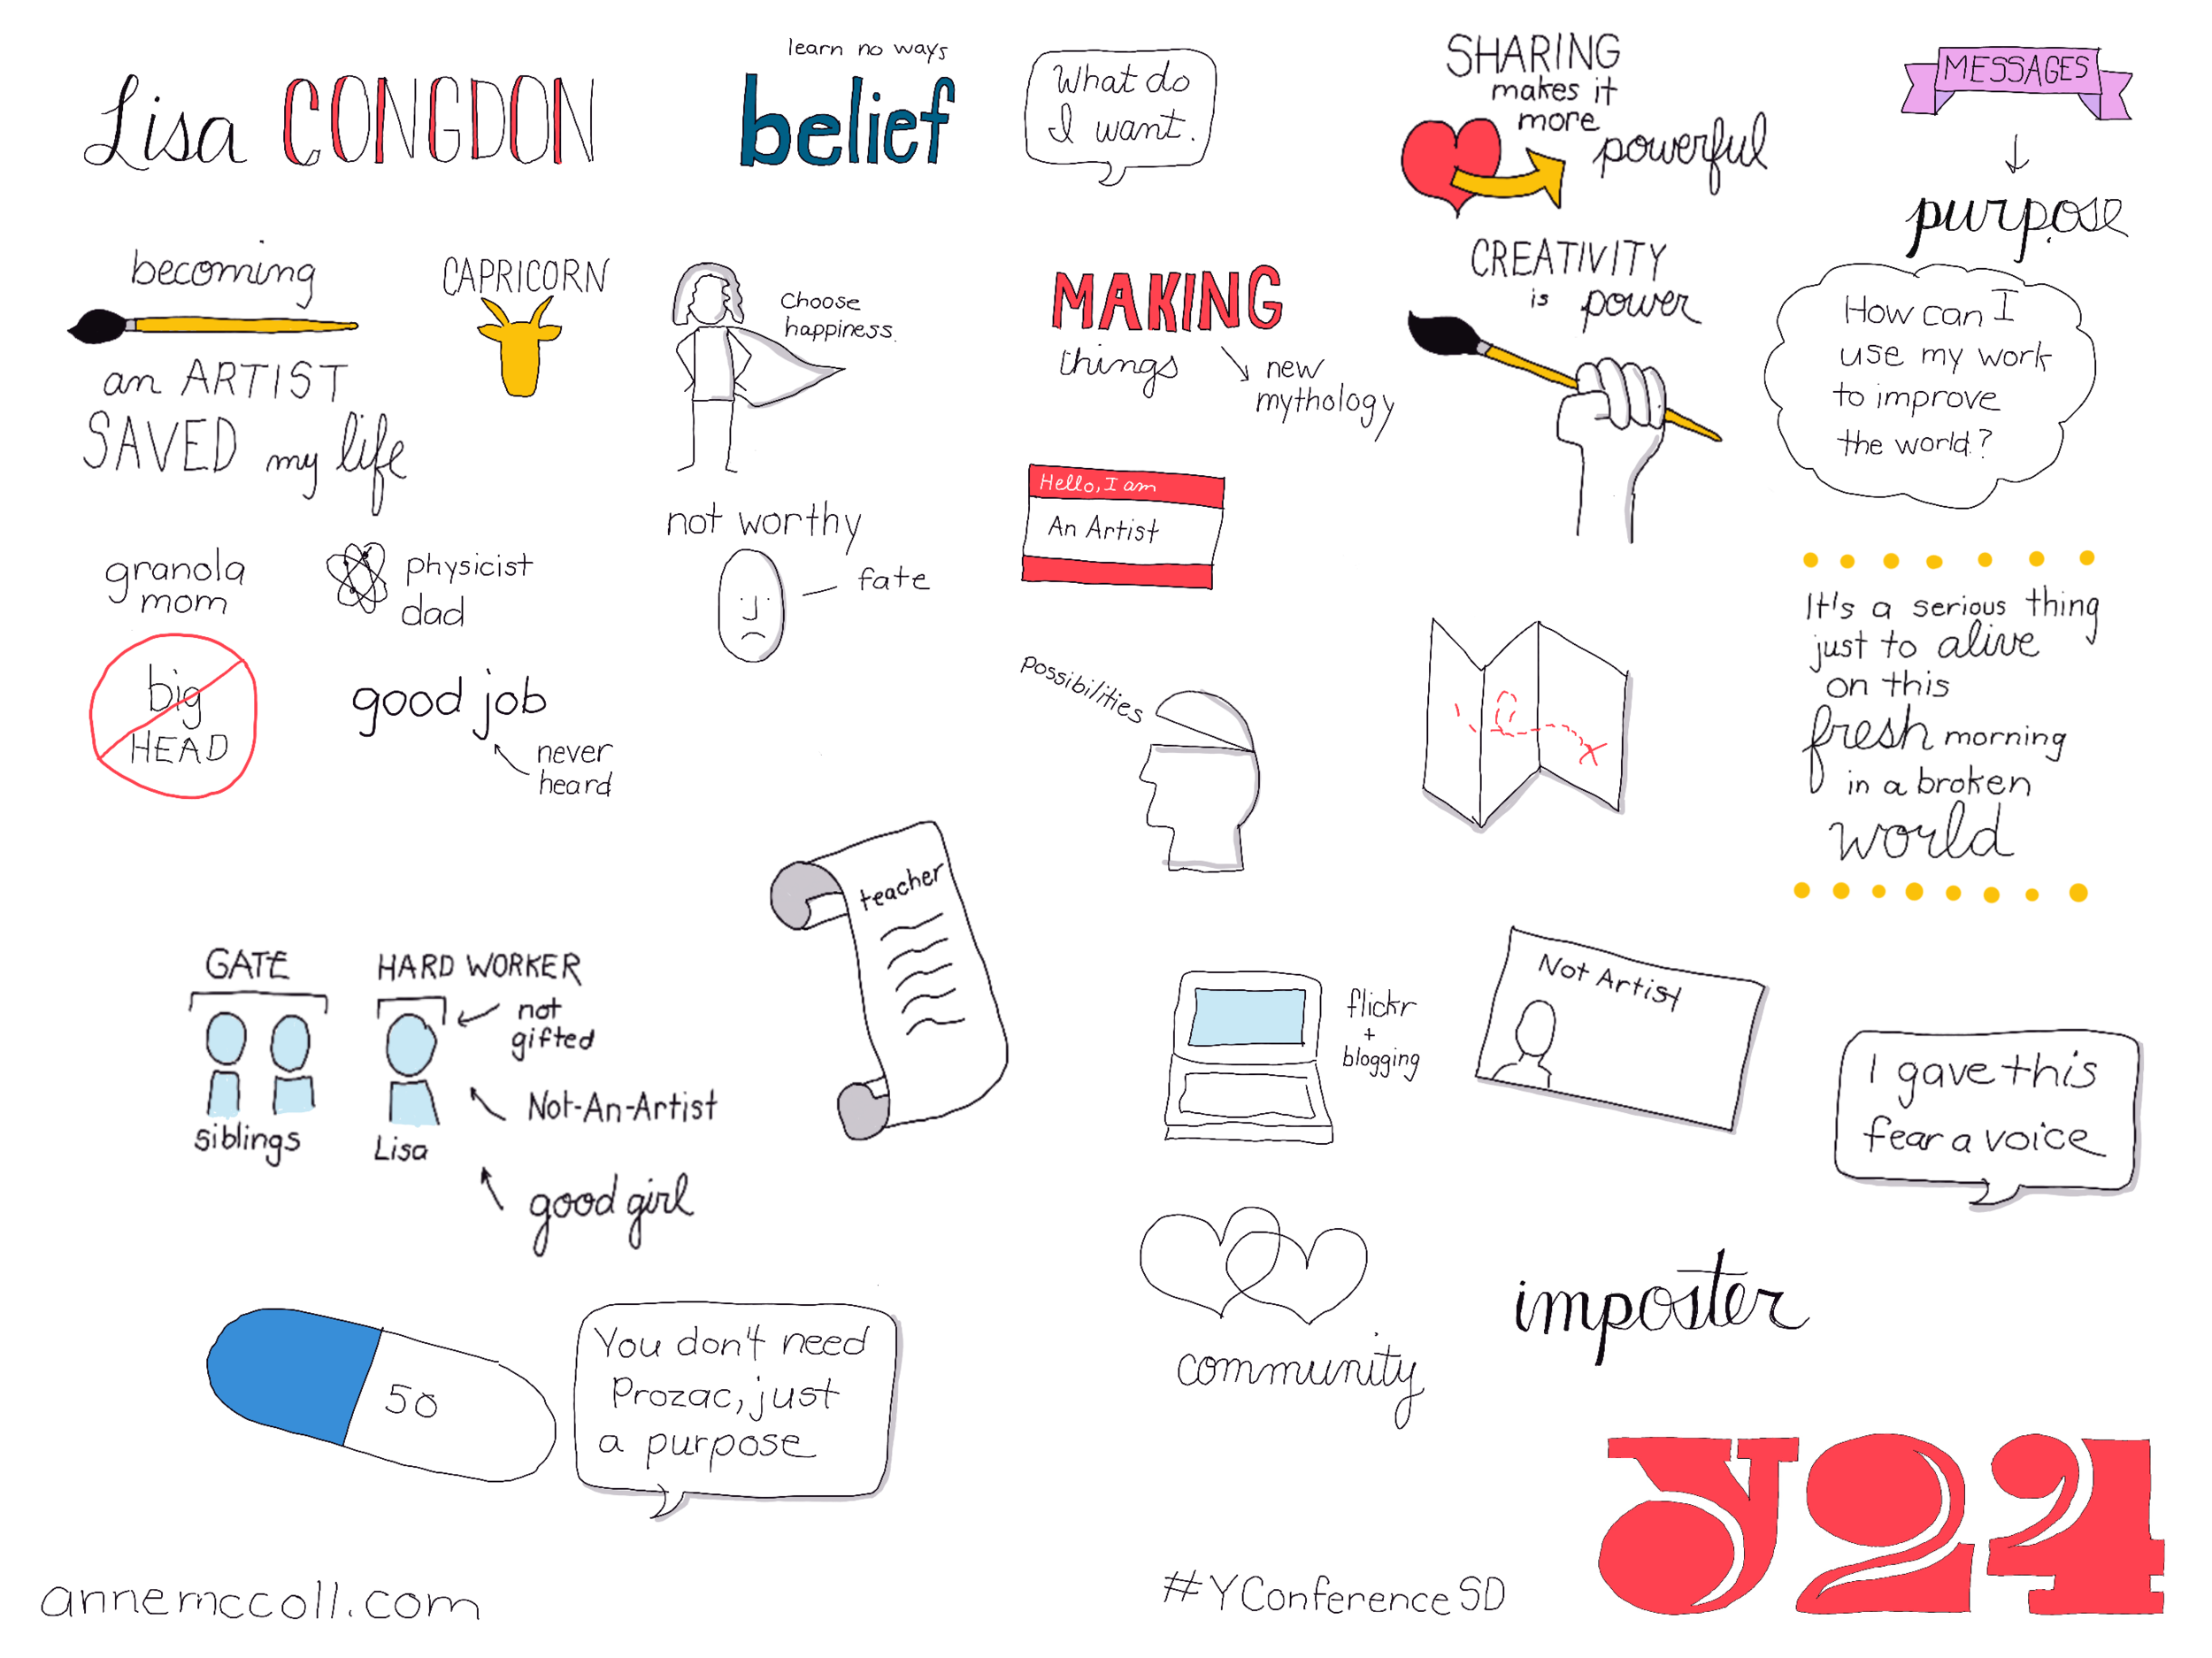 Lisa CONGDON
becoming
an ARTIST
SAVED my life
CAPRICORN
granola
mom
physicist
dad
big
HEAD
good job
never
heard
GATE
siblings
HARD WORKER
not
gifted
Lisa
Not-An-Artist
good girl
50
You don't need
Prozac, just
a purpose
learn no ways
belief
Choose
happiness.
not worthy
fate
teacher
What do
I want.
MAKING
things
new
mythology
Hello, I am
An Artist
possibilities
flickr
+
blogging
community
SHARING
makes it
more
powerful
CREATIVITY
is power
Not Artist
imposter
MESSAGES
purpose
How can I
use my work
to improve
the world?
It's a serious thing
just to alive
on this
fresh morning
in a broken
world
I gave this
fear a voice
annemccoll.com
#YConferenceSD
Y24